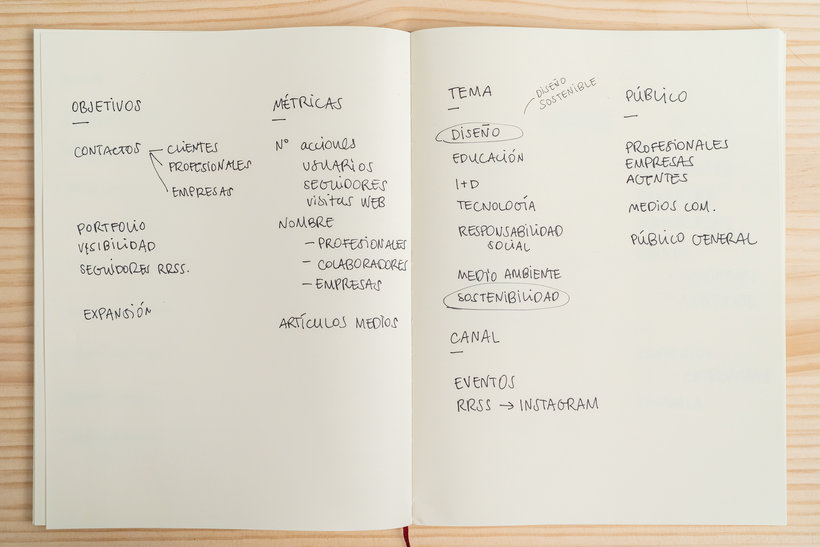 OBJETIVOS
CONTACTOS
CLIENTES
PROFESIONALES
EMPRESAS
PORTFOLIO
VISIBILIDAD
SEGUIDORES RRSS.
EXPANSIÓN
MÉTRICAS
Nº acciones
USUARIOS
SEGUIDORES
VISITAS WEB
NOMBRE
– PROFESIONALES
– COLABORADORES
– EMPRESAS
ARTÍCULOS MEDIOS
TEMA
DISEÑO
SOSTENIBLE
DISEÑO
EDUCACIÓN
I+D
TECNOLOGÍA
RESPONSABILIDAD
SOCIAL
MEDIO AMBIENTE
SOSTENIBILIDAD
CANAL
EVENTOS
RRSS → INSTAGRAM
PÚBLICO
PROFESIONALES
EMPRESAS
AGENTES
MEDIOS COM.
PÚBLICO GENERAL